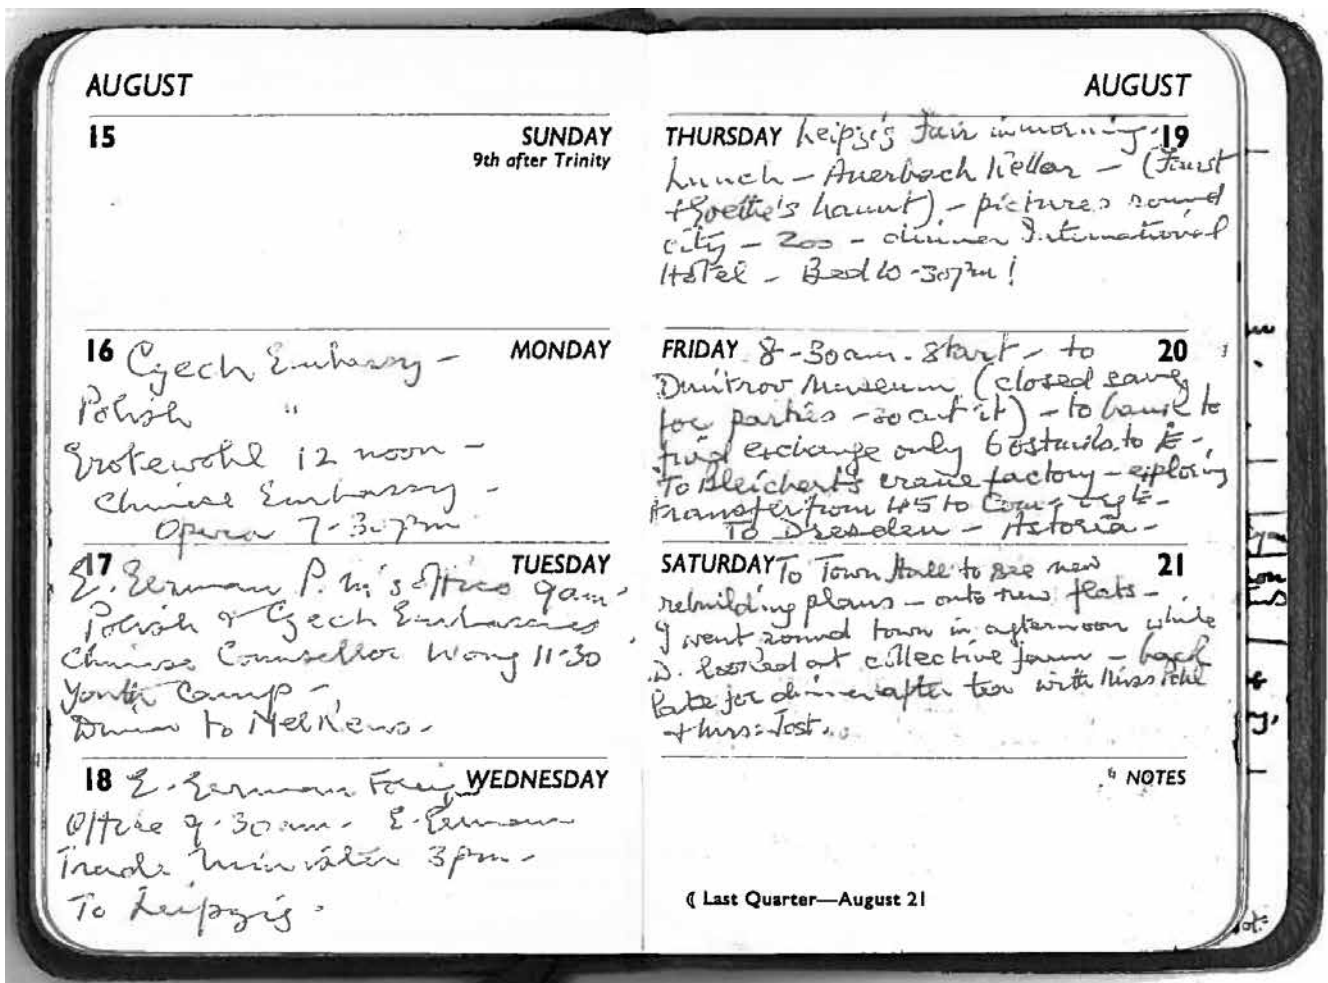 AUGUST
15 SUNDAY
9th after Trinity
16 MONDAY
Czech Embassy -
Polish "
Grotewohl 12 noon -
Chinese Embassy -
Opera 7-30pm
17 TUESDAY
E. German P.M's Office 9am.
Polish & Czech Embassies
Chinese Counsellor Wong 11-30
Youth Camp -
to
18 WEDNESDAY
E. German Foreign
Office 9.30am. E. German
Trade Minister 3pm -
To Leipzig.
AUGUST
THURSDAY 19
Leipzig Fair in morning.
Lunch - Auerbach Kellar - (Faust
+ Goethe's haunt) - pictures round
city - Zoo - dinner International
Hotel - Bed 10-30pm!
FRIDAY 20
8-30am. Start - to
Dmitrov Museum (closed save
for parties - so cut it) - to bank to
find exchange only 6 to £ -
To Bleichert's crane factory - exploring
transfer from 45 to
To Dresden - Astoria -
SATURDAY 21
To Town Hall to see new
rebuilding plans - onto new flats -
I went round town in afternoon while
D. looked at collective farm - back
late for dinner after tea with Miss
+ Mrs: Jost.
NOTES
☾ Last Quarter—August 21